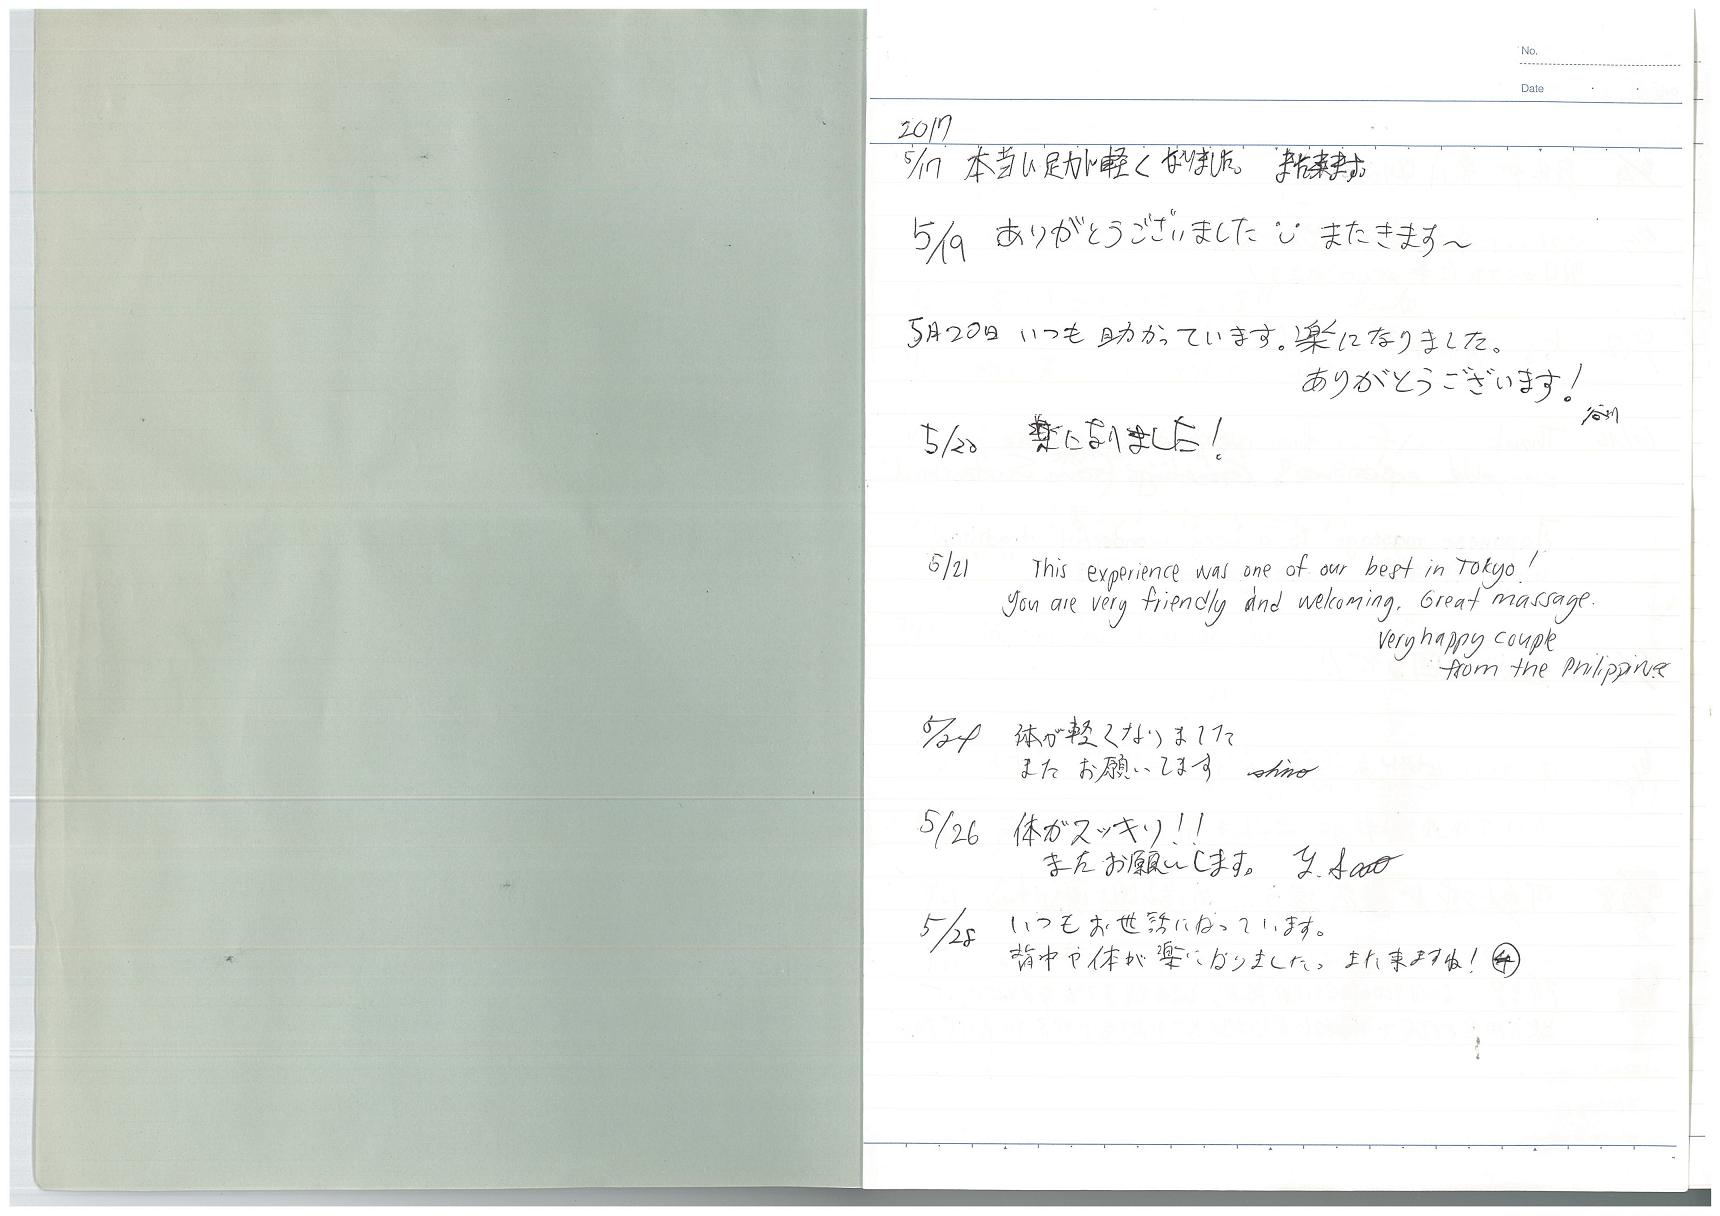 No.
Date
2017
5/17 本当に足が軽くなりました。 また来ます。
5/19 ありがとうございました またきます〜
5月20日 いつも助かっています。楽になりました。
ありがとうございます!
5/20 楽になりました!
5/21 This experience was one of our best in Tokyo!
You are very friendly and welcoming. Great massage.
Very happy couple
from the Philippines
5/24 体が軽くなりました
またお願いします
5/26 体がスッキリ!!
またお願いします。
5/28 いつもお世話になっています。
背中や体が楽になりました。また来ますね!